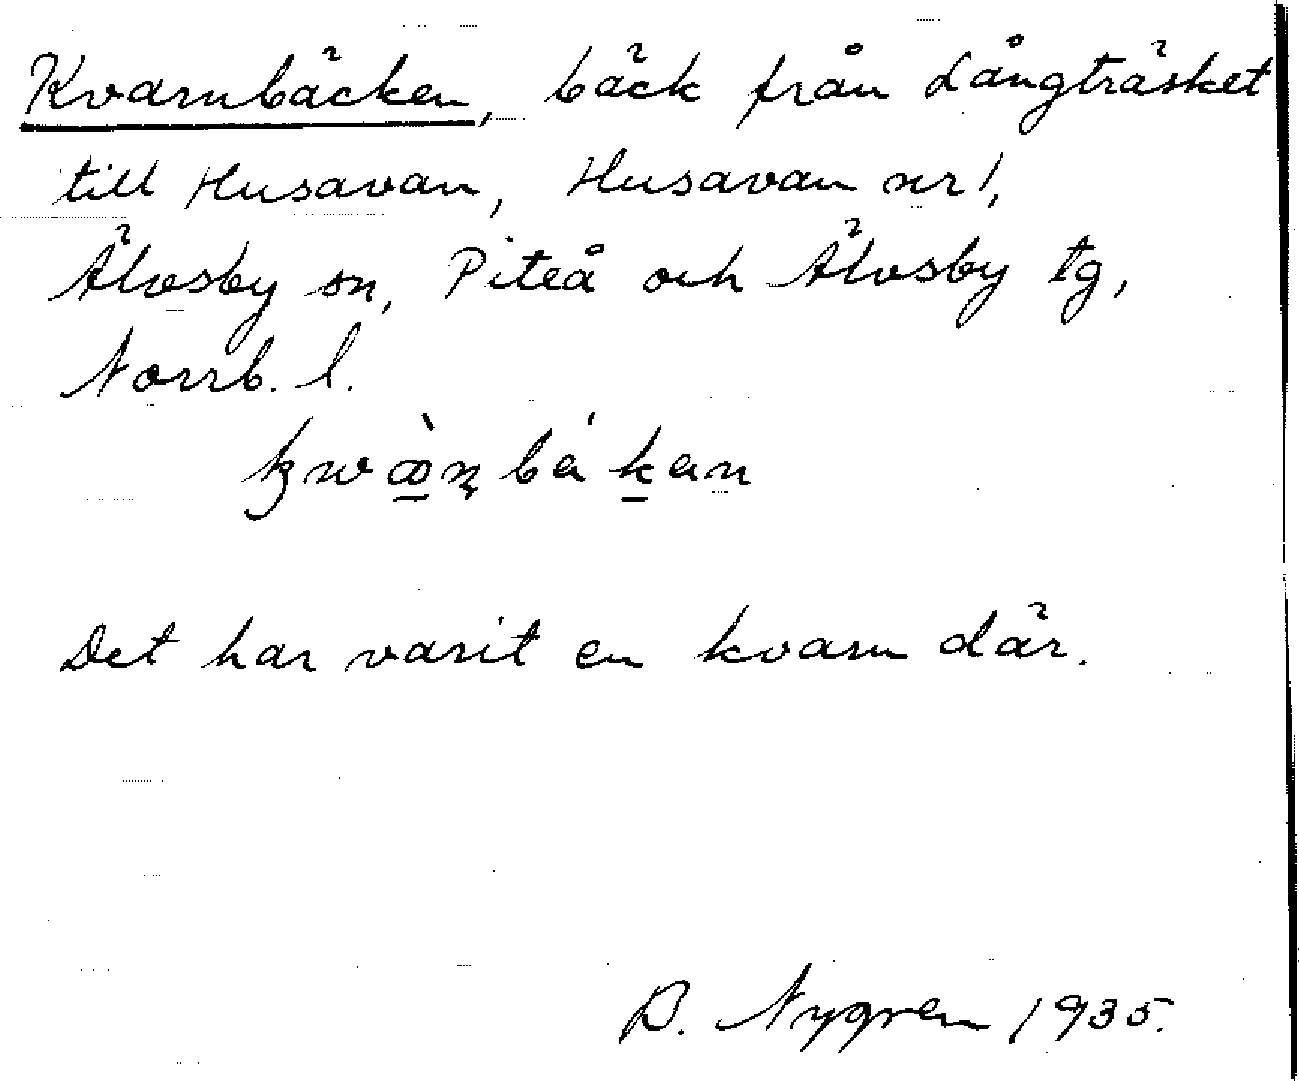 Kvarnbäcken, bäck från Långträsket
till Husavan, Husavan nr 1,
Älvsby sn, Piteå och Älvsby tg,
Norrb. l.
Det har varit en kvarn där.
B. Nygren 1935.